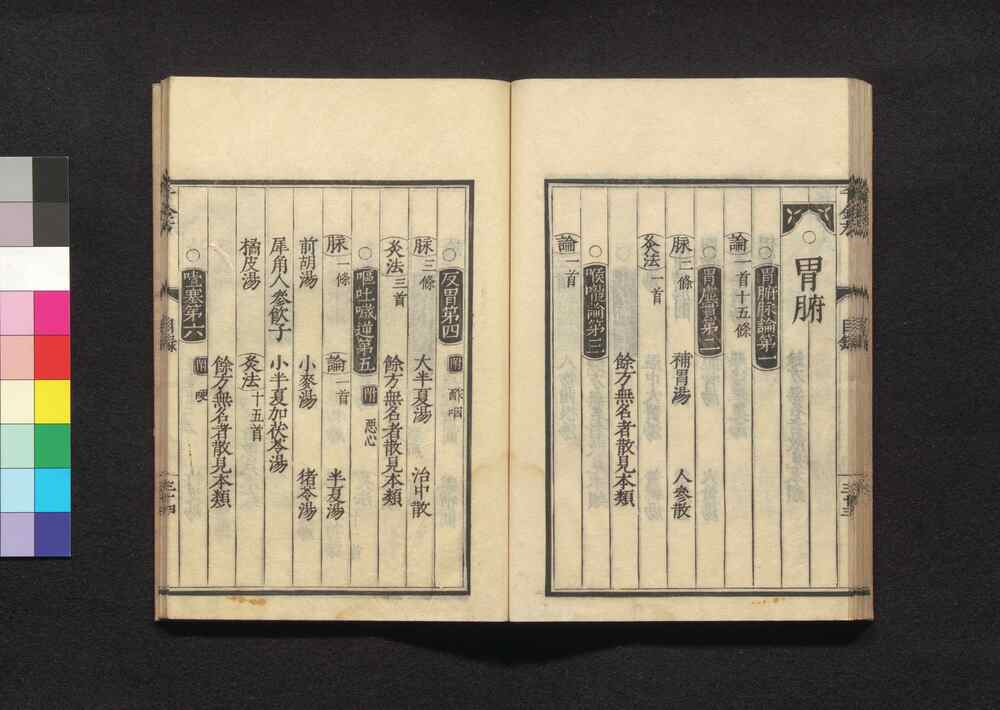 ○胃腑
○胃腑脉論第一
論一首十五條
○胃虛實第二
脉三條 補胃湯 人參散
灸法一首
餘方無名者散見本類
○喉嚨論第三
論一首
○反胃第四 附 酢咽
脉三條 大半夏湯 治中散
灸法三首 餘方無名者散見本類
○嘔吐噦逆第五 附 惡心
脉一條 論一首 半夏湯
前胡湯 小麥湯 猪苓湯
犀角人參飲子 小半夏加茯苓湯
橘皮湯 灸法十五首
餘方無名者散見本類
○噎塞第六 附 哽
目錄
目錄